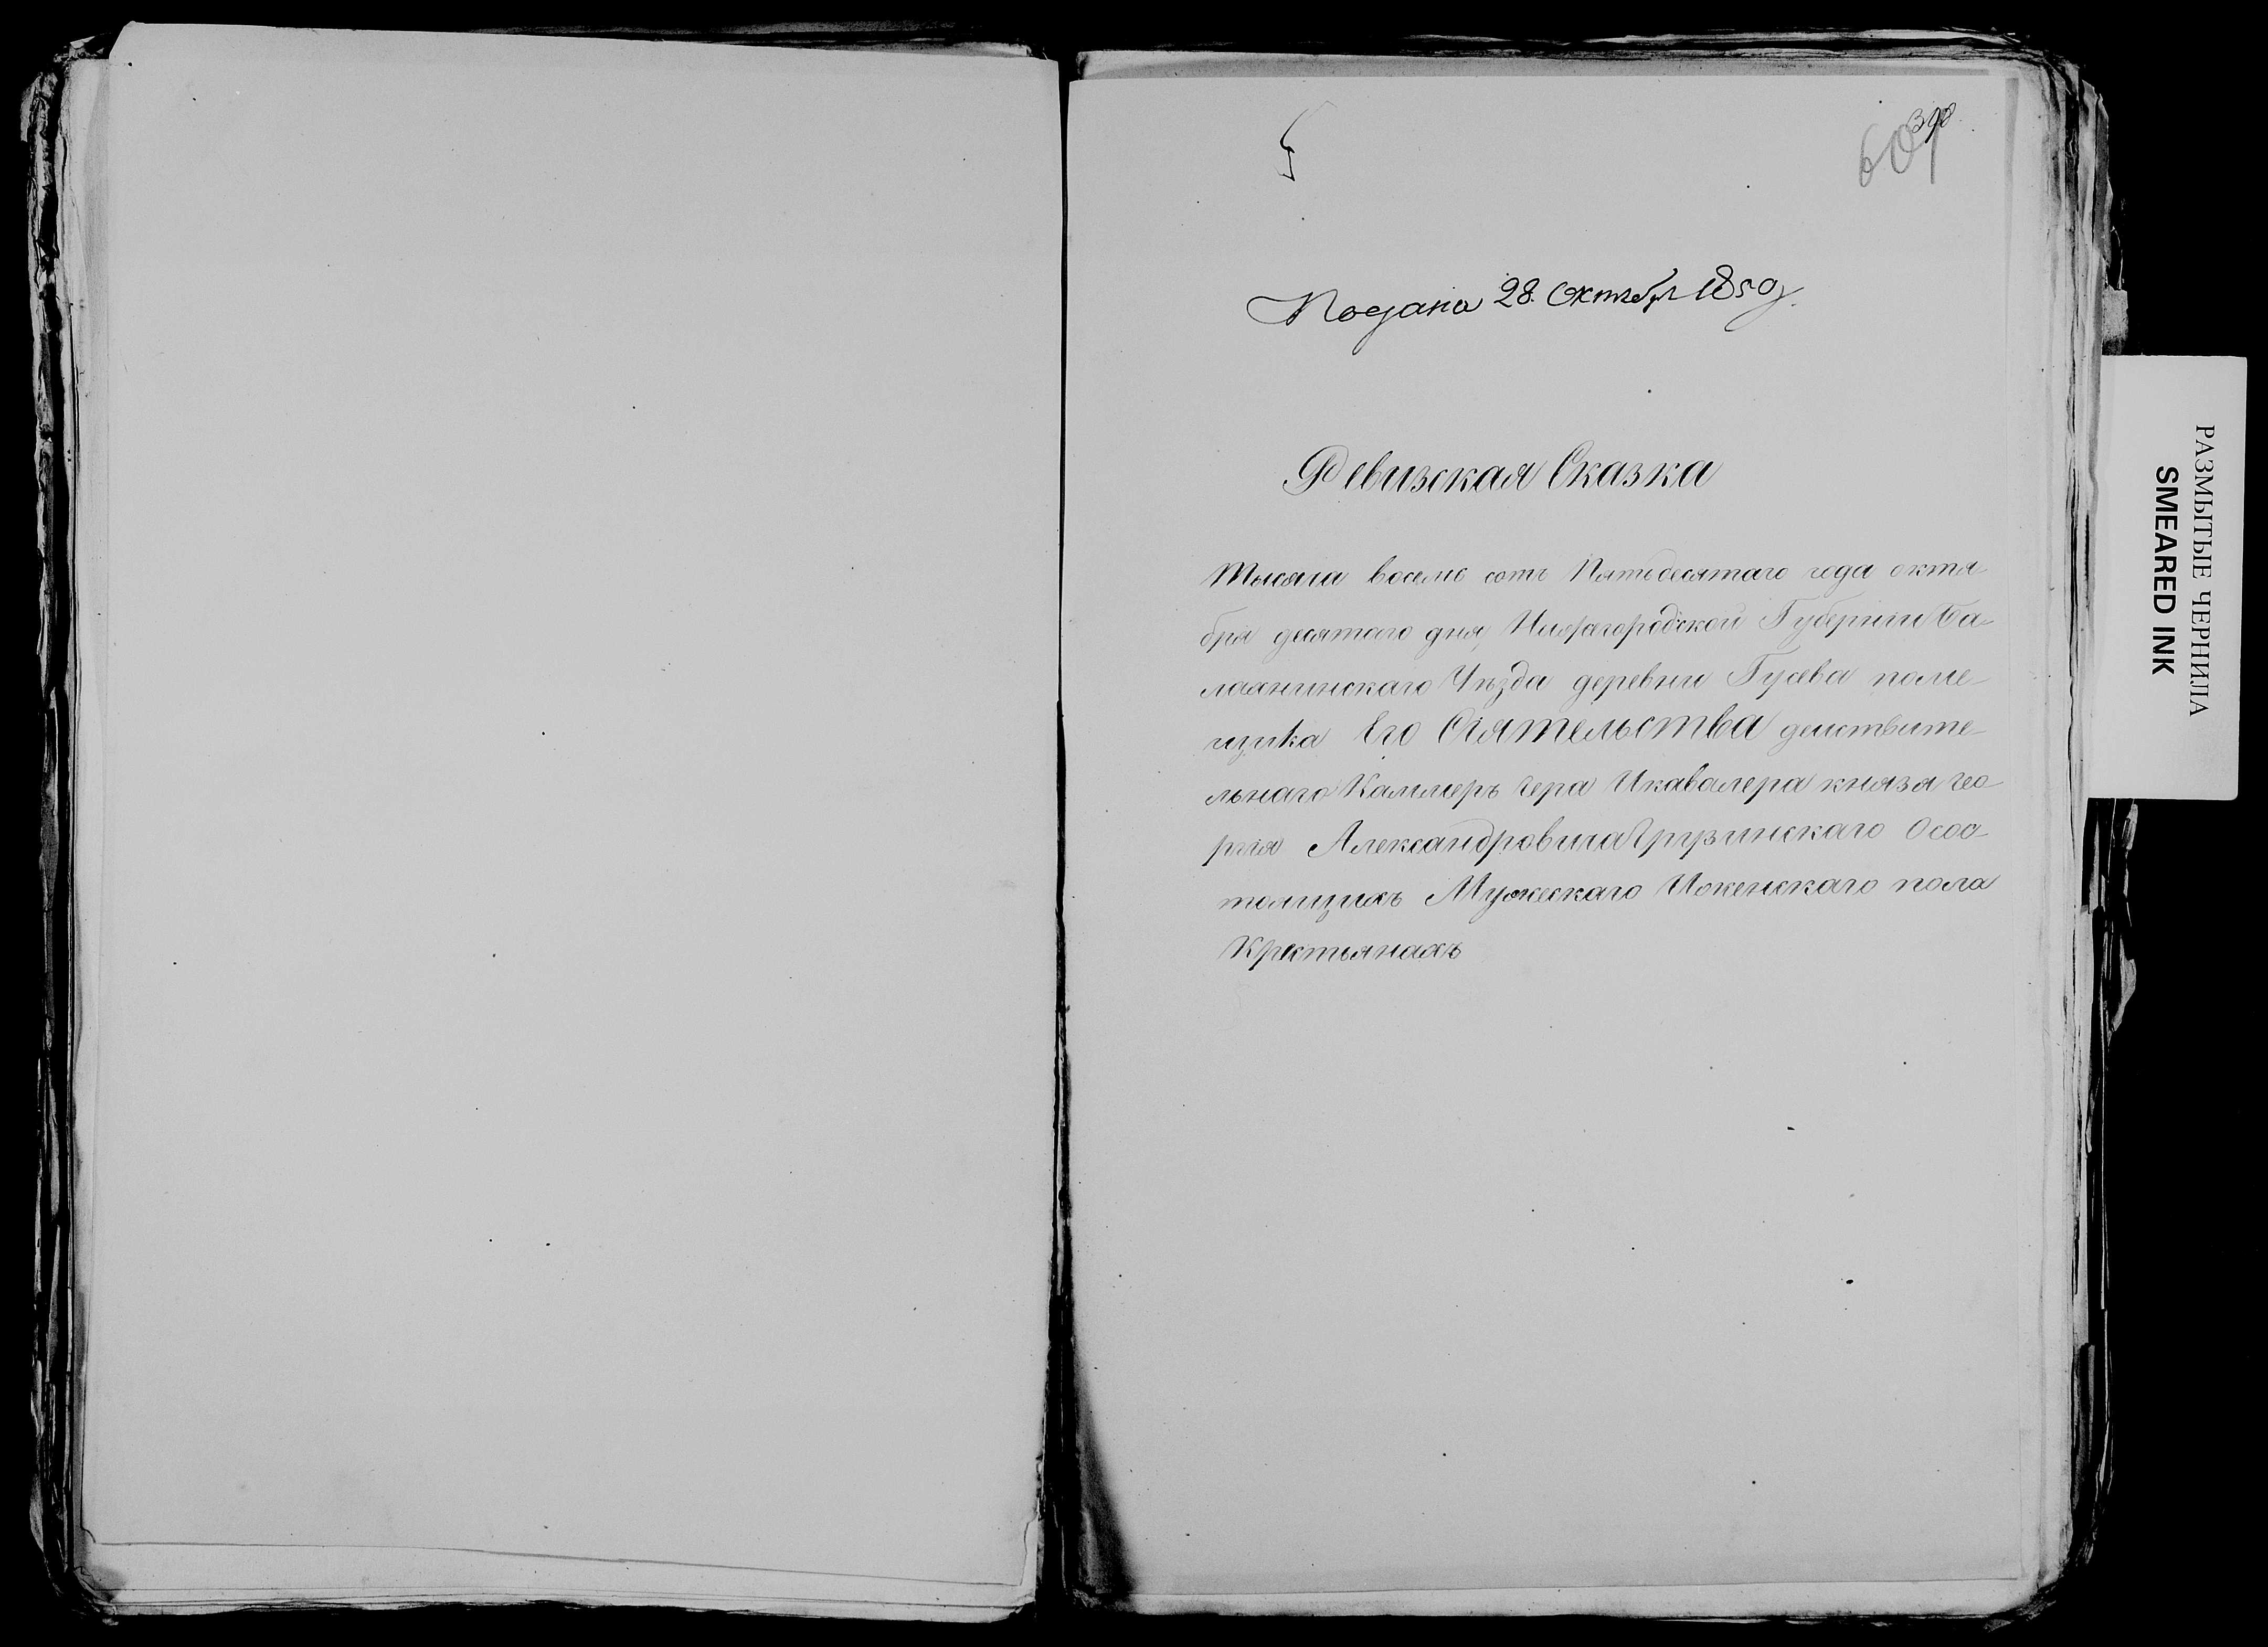 601
398
Подана 28. Октября 1850 г.
Ревизская Сказка
Тысяча восемь сотъ Пятьдесятаго года октя-
бря десятаго дня, Нижегородской Губернiи Ба-
лахнинскаго Уѣзда деревни Гусева поме-
щика Его Сiятельства действите-
льнаго Каммеръ гера Икавалера князя Гео-
ргiя Александровича Грузинскаго Осос-
тоящихъ Мужескаго Иженскаго пола
Крестьянахъ
РАЗМЫТЫЕ ЧЕРНИЛА
SMEARED INK